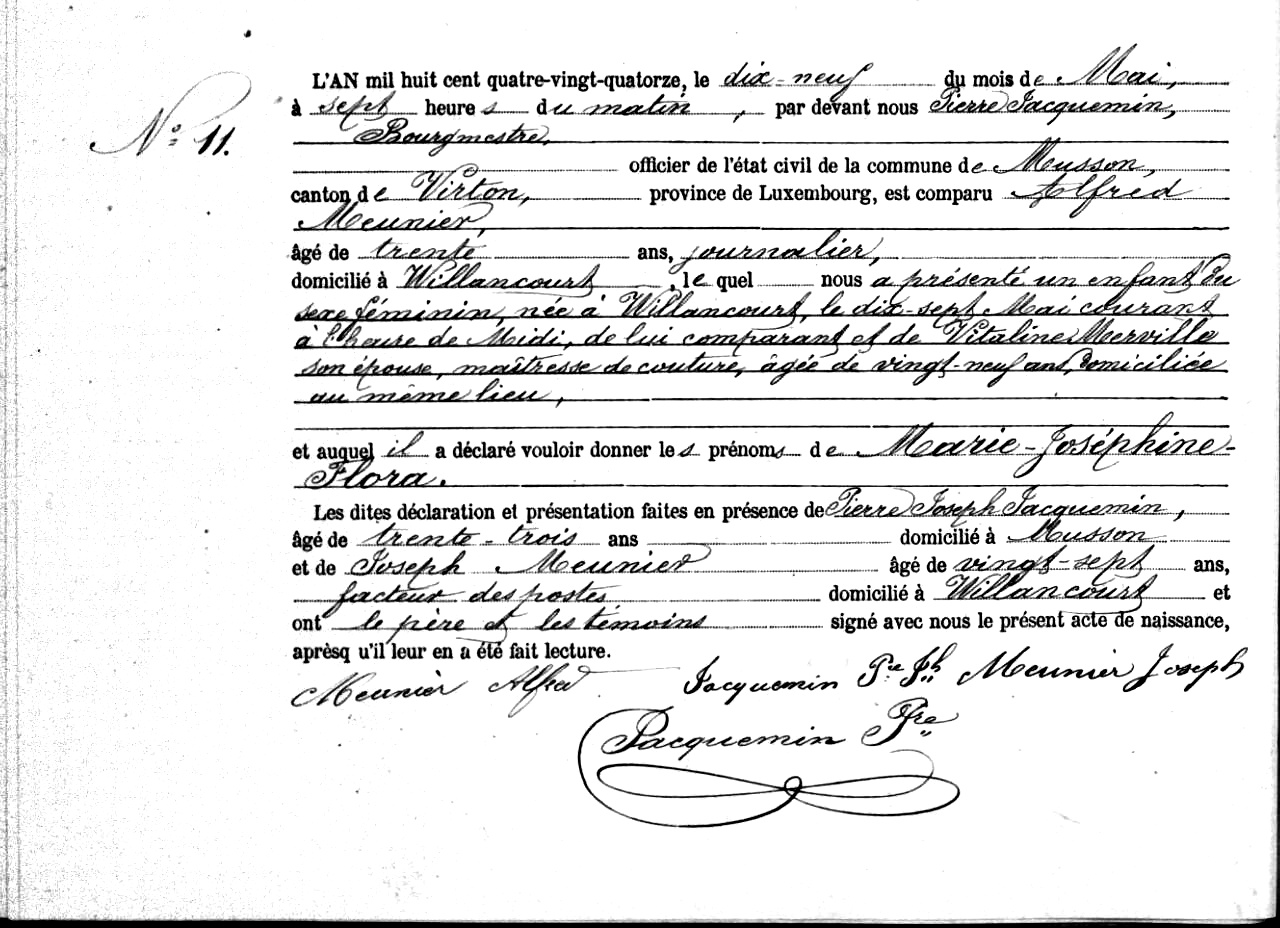 L'AN mil huit cent quatre-vingt-quatorze, le dix-neuf du mois de Mai,
à sept heures du matin, par devant nous Pierre Jacquemin,
N° 11.
Bourgmestre,
officier de l'état civil de la commune de Musson,
canton de Virton, province de Luxembourg, est comparu Alfred
Meunier,
âgé de trente ans, journalier,
domicilié à Willancourt, lequel nous a présenté un enfant du
sexe féminin, née à Willancourt, le dix-sept Mai courant
à l'heure de Midi, de lui comparant et de Vitaline Merville
son épouse, maîtresse de couture, âgée de vingt-neuf ans, domiciliée
au même lieu,
et auquel il a déclaré vouloir donner les prénoms de Marie-Joséphine-
Flora.
Les dites déclaration et présentation faites en présence de Pierre Joseph Jacquemin,
âgé de trente-trois ans domicilié à Musson
et de Joseph Meunier âgé de vingt-sept ans,
facteur des postes domicilié à Willancourt et
ont le père et les témoins signé avec nous le présent acte de naissance,
aprèsq u'il leur en a été fait lecture.
Meunier Alfred Jacquemin Pre Jph Meunier Joseph
Jacquemin Pre